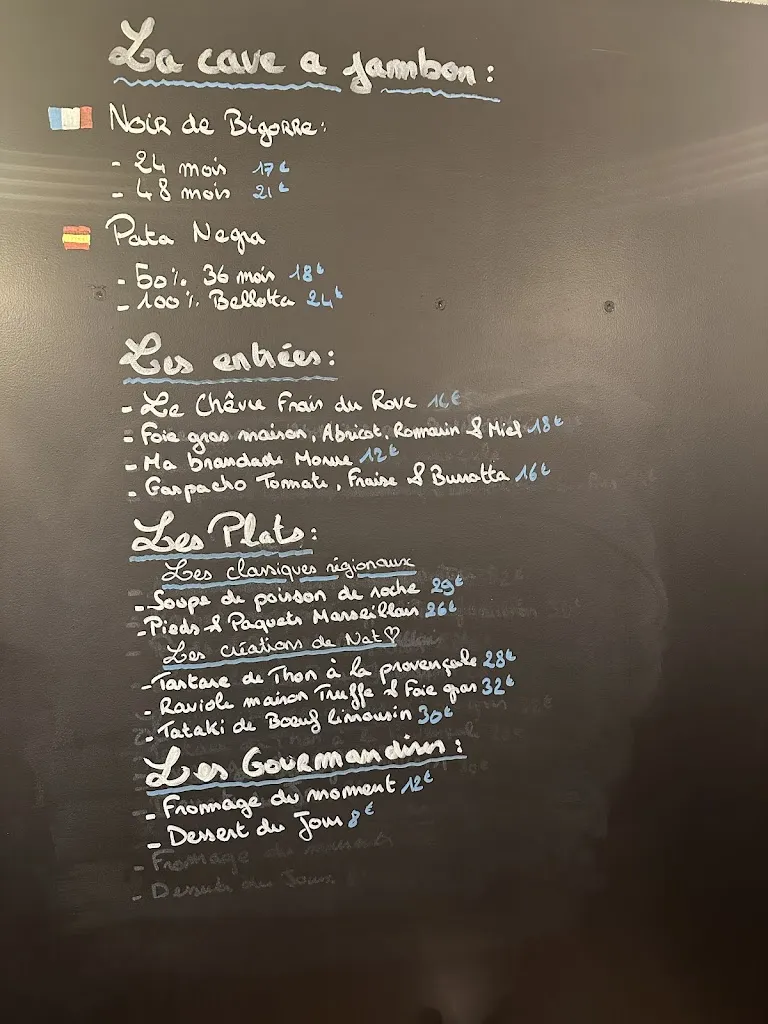 La cave a jambon :
Noir de Bigorre :
- 24 mois 17€
- 48 mois 21€
Pata Negra
- 50% 36 mois 18€
- 100% Bellotta 24€
Les entrées :
- Le Chêvre Frais du Rove 16€
- Foie gras maison, Abricot, Romarin & Miel 18€
- Ma brandade Morue 12€
- Gaspacho Tomate, Fraise & Burratta 16€
Les Plats :
Les classiques régionaux
- Soupe de poisson de roche 29€
- Pieds & Paquets Marseillais 26€
Les créations de Nat ♡
- Tartare de Thon à la provençale 28€
- Raviole maison Truffe & Foie gras 32€
- Tataki de Bœuf limousin 30€
Les Gourmandises :
- Fromage du moment 12€
- Dessert du Jour 8€
- Fromage du moment
- Dessert du Jour